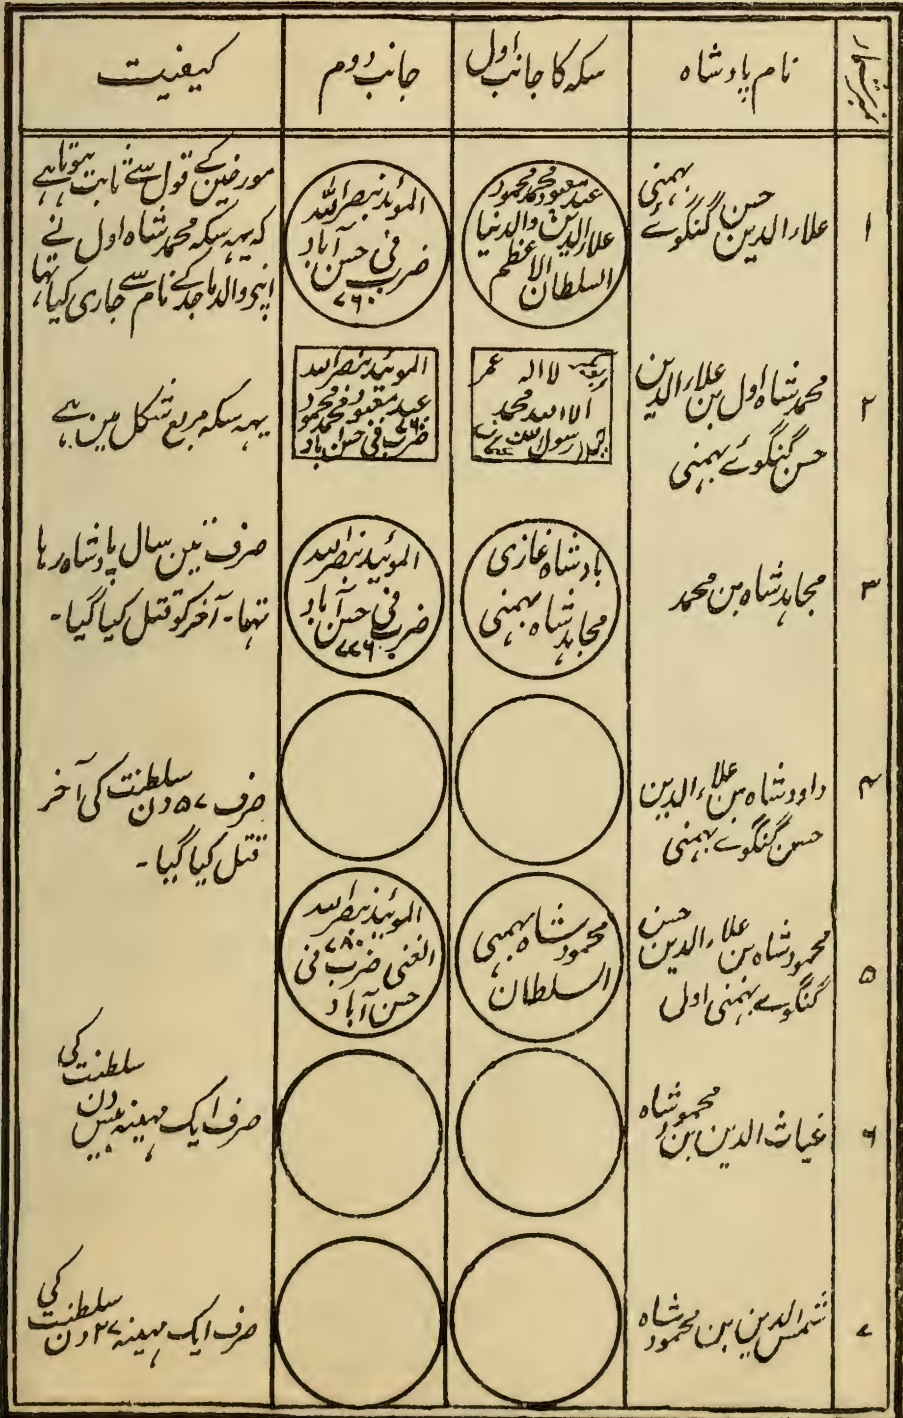 نمبر شمار
نام پادشاہ
سکہ کا جانب اول
جانب دوم
کیفیت
۱
علاء الدین حسن گنگوے بہمنی
عبد معبود محمد محمود
علاء الدین والدنیا
السلطان الاعظم
الموئید بنصر اللہ
ضرب فی حسن آباد
۷۶۰
مورخین کے قول سے ثابت ہوتا ہے
کہ یہہ سکہ محمد شاہ اول نے
اپنے والد ماجد کے نام سے جاری کیا تہا
۲
محمد شاہ اول بن علاء الدین
حسن گنگوئے بہمنی
لا الہ عمر
الا اللہ محمد
رسول اللہ
الموئید بنصر اللہ
عبد معبود محمد محمود
ضرب فی حسن آباد
یہہ سکہ مربع شکل مین ہے
۳
مجاہد شاہ بن محمد
بادشاہ غازی
مجاہد شاہ بہمنی
الموئید بنصر اللہ
ضرب فی حسن آباد
۷۷۶
صرف تین سال پادشاہ رہا
تہا۔ آخر کو قتل کیا گیا۔
۴
داود شاہ بن علاء الدین
حسن گنگوے بہمنی
صرف ۵۷ دن سلطنت کی آخر
قتل کیا گیا۔
۵
محمود شاہ بن علاء الدین حسن
گنگوے بہمنی اول
محمود شاہ بہمنی
السلطان
الموئید بنصر اللہ
الغنی ۷۸۰ ضرب فی
حسن آباد
۶
غیاث الدین بن محمود شاہ
صرف ایک مہینہ بیس دن سلطنت کی
۷
شمس الدین بن محمود شاہ
صرف ایک مہینہ ۲۷ دن سلطنت کی